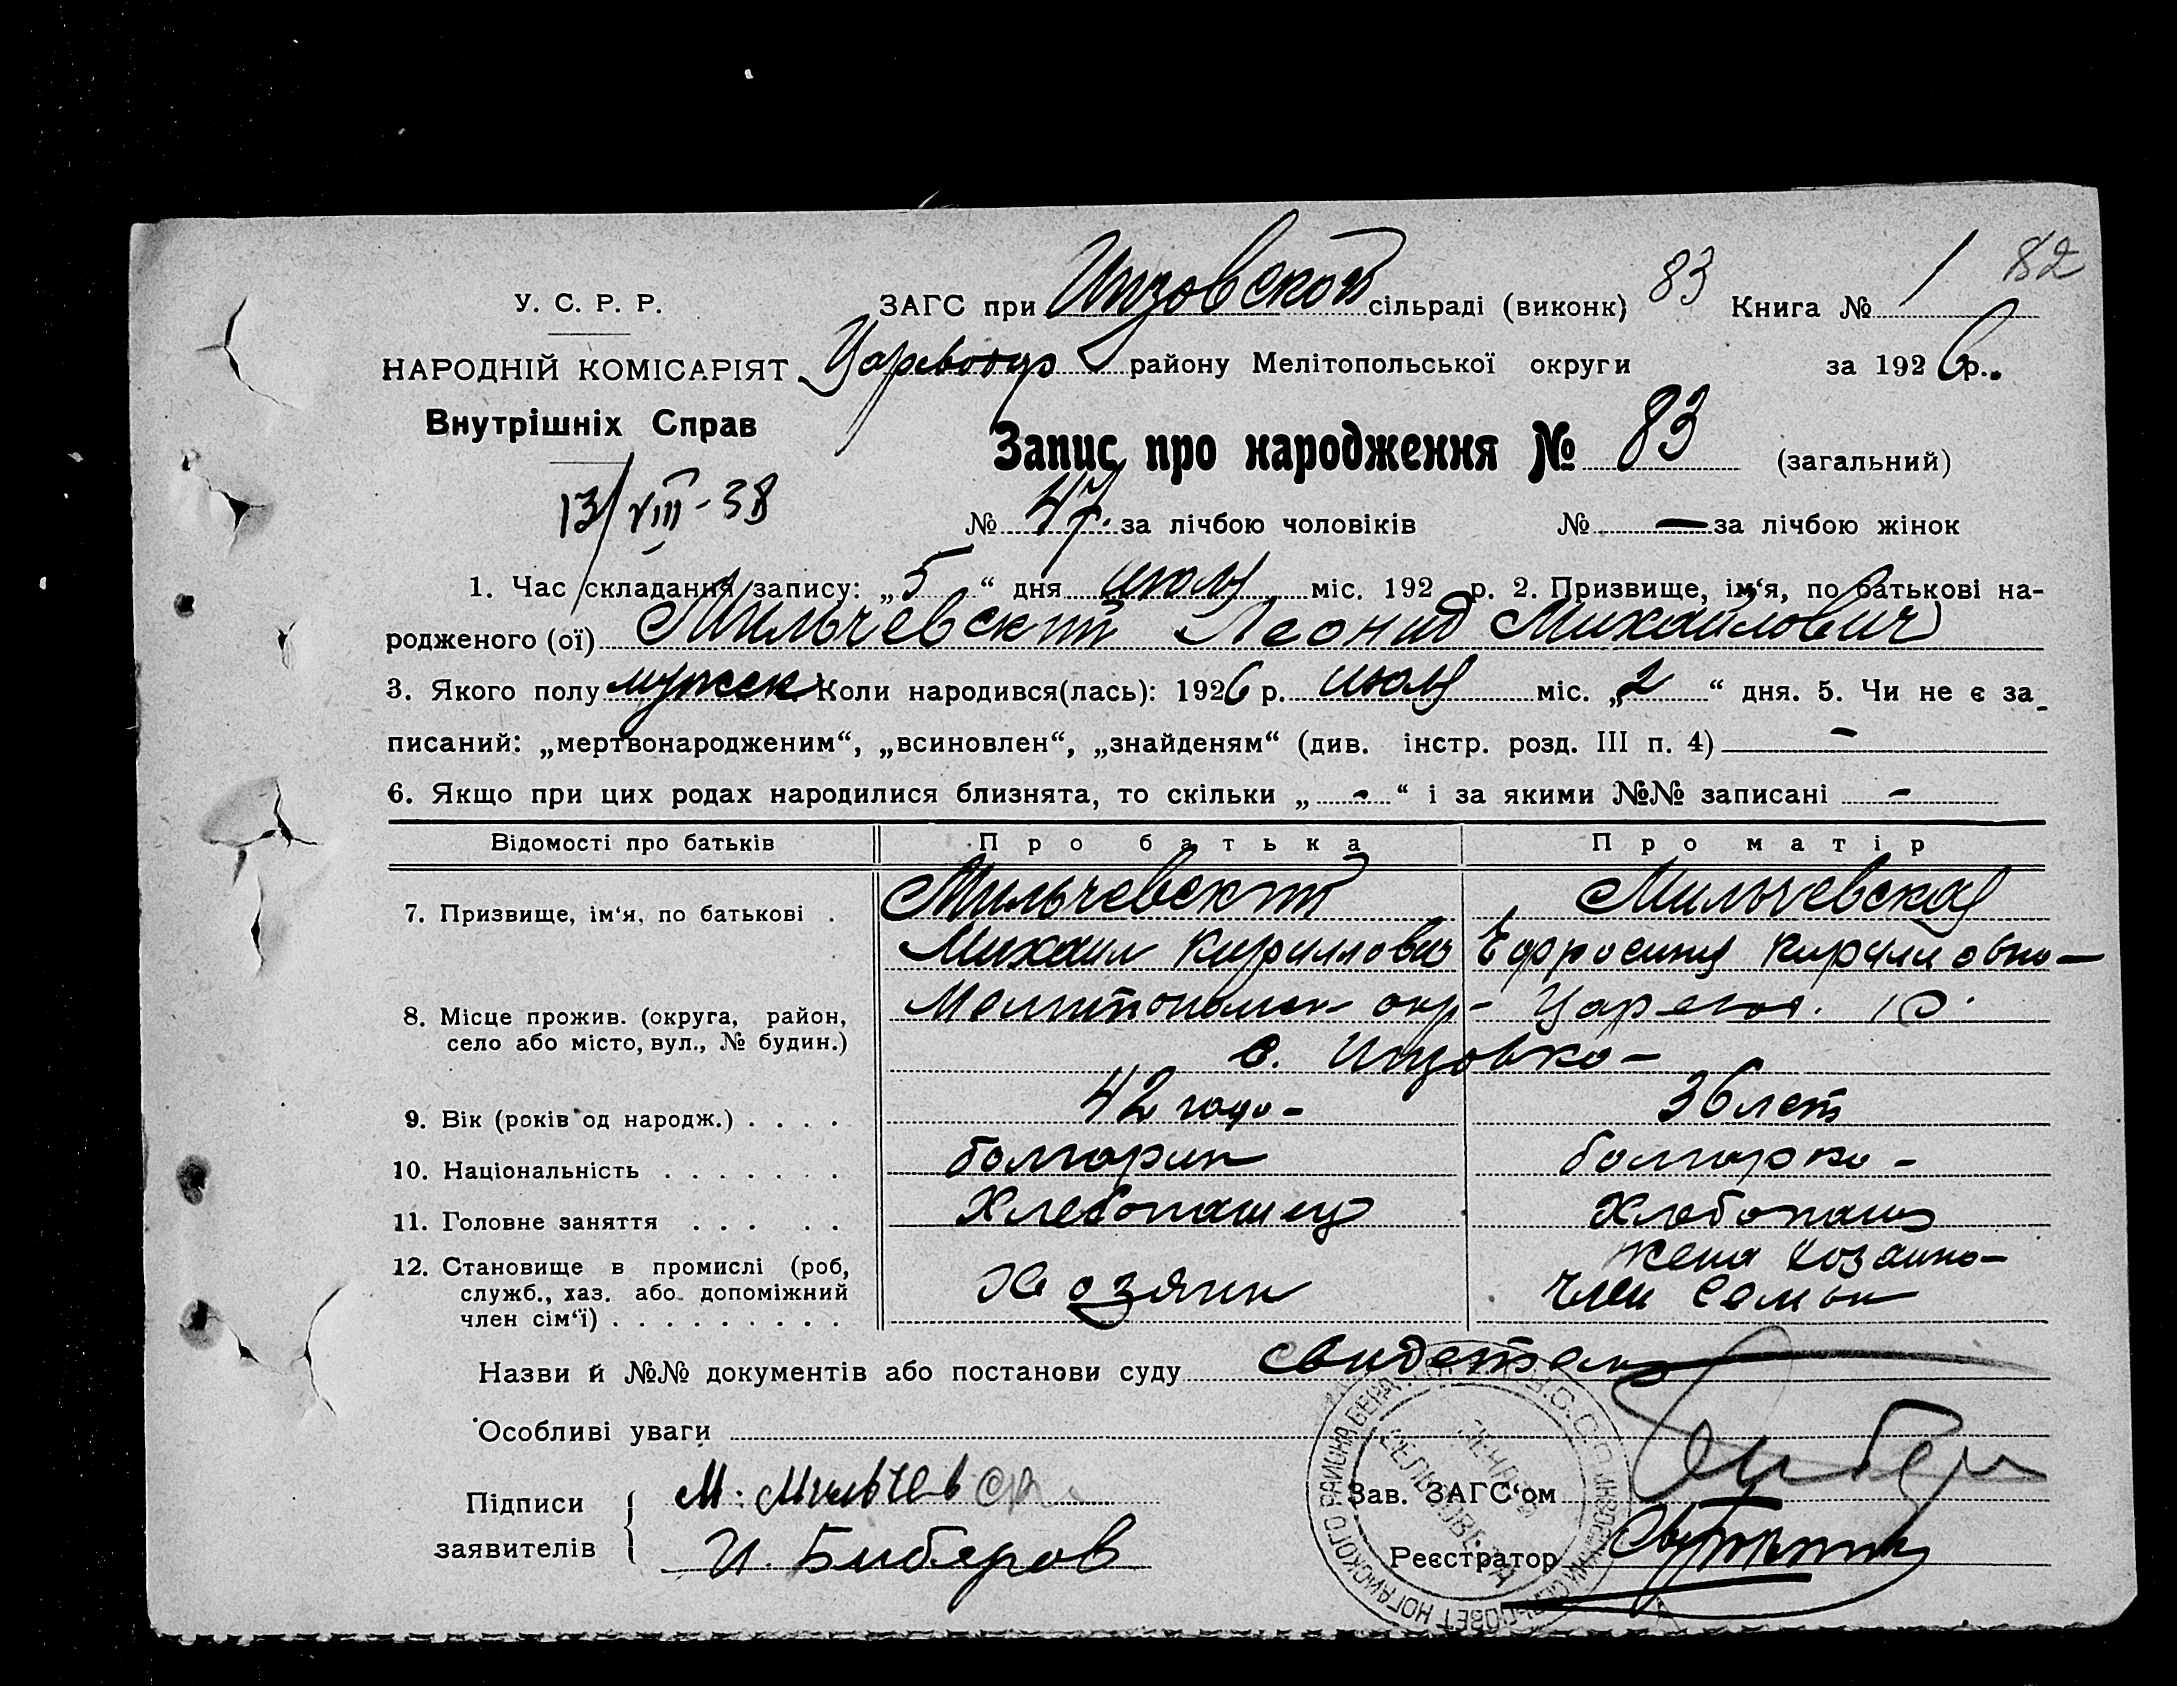 82
У. С. Р. Р. ЗАГС при Инзовской сільраді (виконк) 83 Книга № 1
НАРОДНІЙ КОМІСАРІЯТ району Мелітопольської округи за 1926 р.
Внутрішніх Справ
Запис про народження № 83 (загальний)
13/VIII-38
№ 47. за лічбою чоловіків № — за лічбою жінок
1. Час складання запису: „5“ дня июля міс. 192 р. 2. Призвище, ім‘я, по батькові на-
родженого (ої) Мильчевский Леонид Михайлович
3. Якого полу мужск Коли народився(лась): 1926 р. июля міс. „2“ дня. 5. Чи не є за-
писаний: „мертвонародженим“, „всиновлен“, „знайденям“ (див. інстр. розд. III п. 4) –
6. Якщо при цих родах народилися близнята, то скільки „ - “ і за якими №№ записані -
Відомості про батьків Про батька Про матір
7. Призвище, ім‘я, по батькові . Мильчевский Мильчевская
Михаил Кириллович Ефросиния Кирилловна
8. Місце прожив. (округа, район, Мелитопольск окр-
село або місто, вул., № будин.) с. Инзовка –
9. Вік (років од народж.) . . . . 42 года - 36 лет
10. Національність . . . . . . . болгарин болгарка -
11. Головне заняття . . . . . Хлебопашец Хлебопаш
12. Становище в промислі (роб, жена хозяина –
служб., хаз. або допоміжний Хозяин член семьи
член сім‘ї) . . . . . . . . .
Назви й №№ документів або постанови суду свидетели
Особливі уваги
Підписи М. Мильчевск
Зав. ЗАГС‘ом
заявителів И. Биберов
Реєстратор